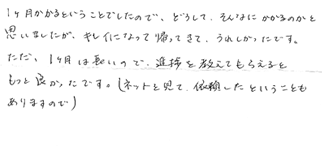 1ヶ月かかるということでしたので、どうして、そんなにかかるのかと
思いましたが、キレイになって帰ってきて、うれしかったです。
ただ、1ヶ月は長いので、進捗を教えてもらえると
もっと良かったです。(ネットを見て、依頼したということも
ありますので)